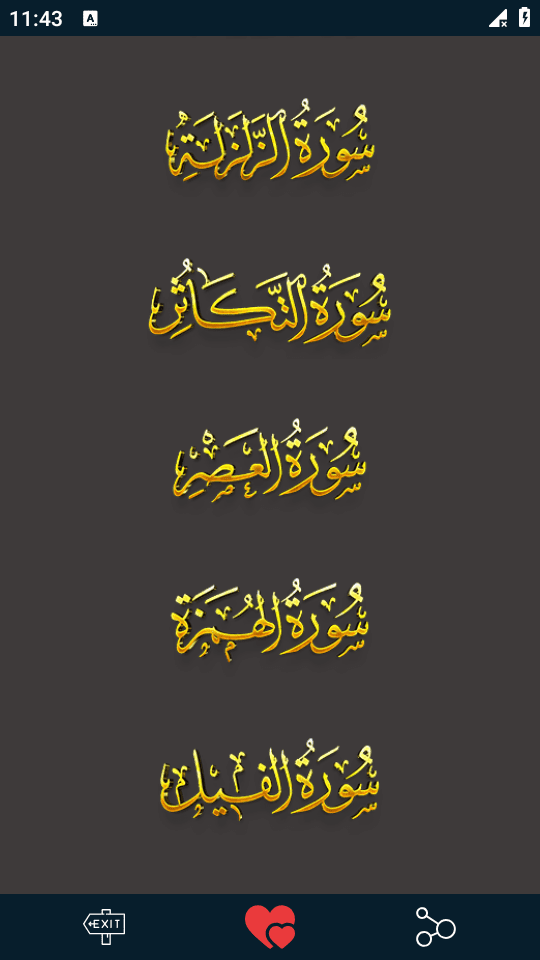 11:43
A
سُورَةُ الزَّلْزَلَةِ
سُورَةُ التَّكَاثُرِ
سُورَةُ الْعَصْرِ
سُورَةُ الْهُمَزَةِ
سُورَةُ الْفِيلِ
EXIT